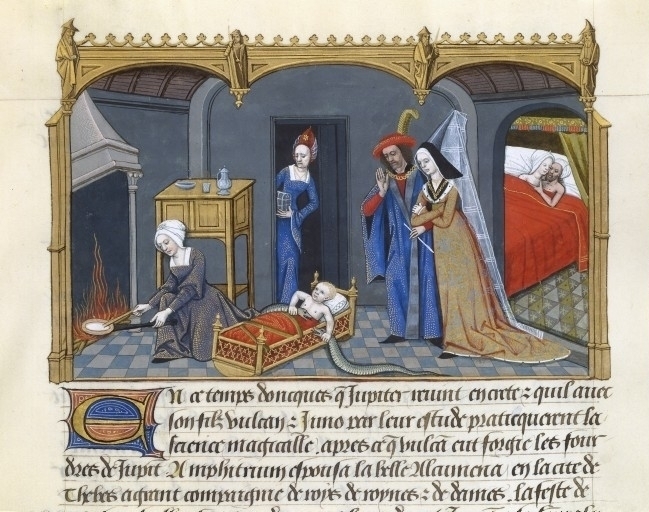 En ce temps doncques q̃ Jupiter viuint en crete ⁊ quil auec
son filz vulcan ⁊ Juno par leur estude practiquerent la
science magicalle, apres ce q̃ vulcã eut forgie les foul
dres de Jupit Amphitrium espousa la belle Alcumena, en la cite de
Thebes a grant compaignie de roys de roynes ⁊ de dames. la feste de